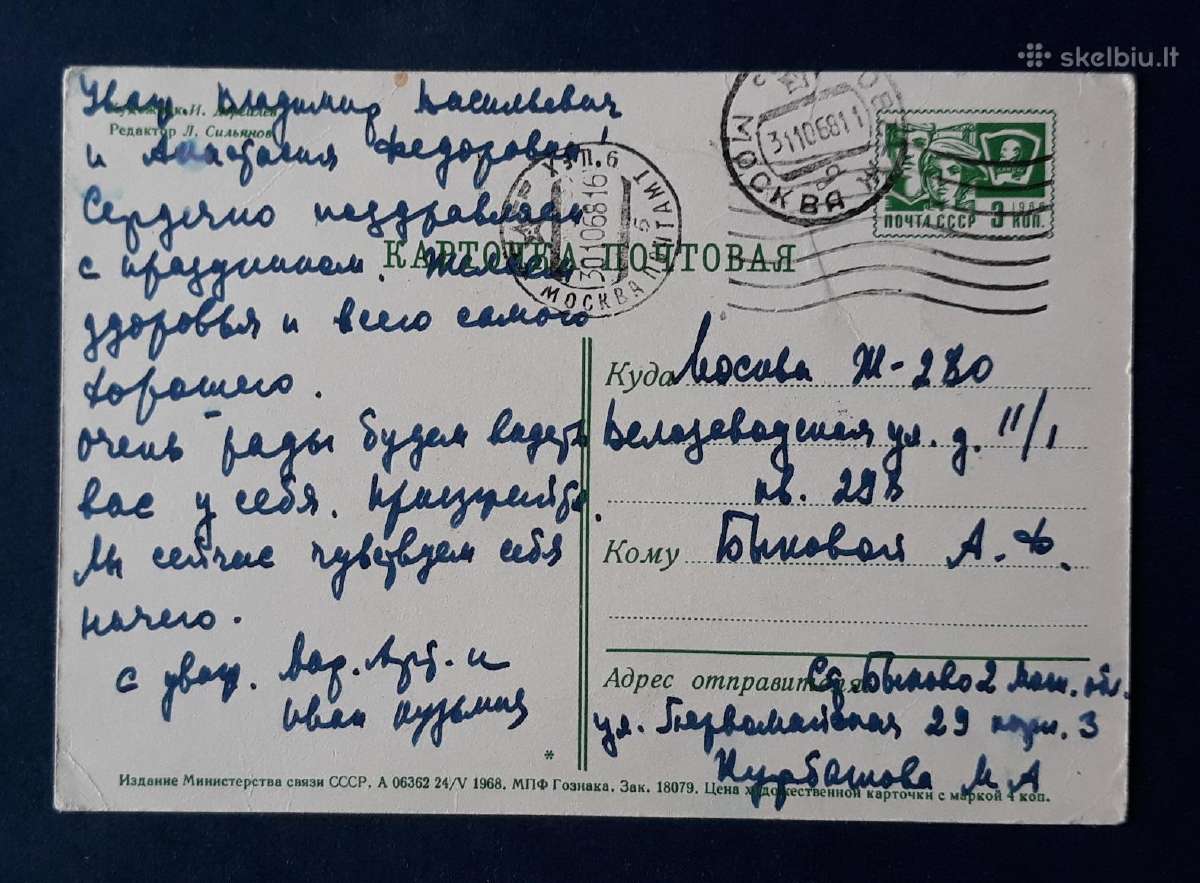 skelbiu.lt
Уваж. Владимир Васильевич
Редактор Л. Сильянов
и Анастасия Федоровна!
Сердечно поздравляем
с праздником. Желаем
здоровья и всего самого
хорошего.
очень рады будем видеть
вас у себя. Приезжайте.
Мы сейчас чувствуем себя
ничего.
с уваж. Вар. Арт. и
Иван Кузьмич
МОСКВА
31106811
МОСКВА ПОЧТАМТ
30106816
ПОЧТА СССР 3 КОП.
КАРТОЧКА ПОЧТОВАЯ
Куда Москва Ж-280
ул. д. 11/1
кв. 298
Кому Быковой А. Ф.
Адрес отправителя Ст. Быково 2 Мос. обл.
ул. Первомайская 29 корп. 3
Курбатова М А
*
Издание Министерства связи СССР. А 06362 24/V 1968. МПФ Гознака. Зак. 18079. Цена художественной карточки с маркой 4 коп.